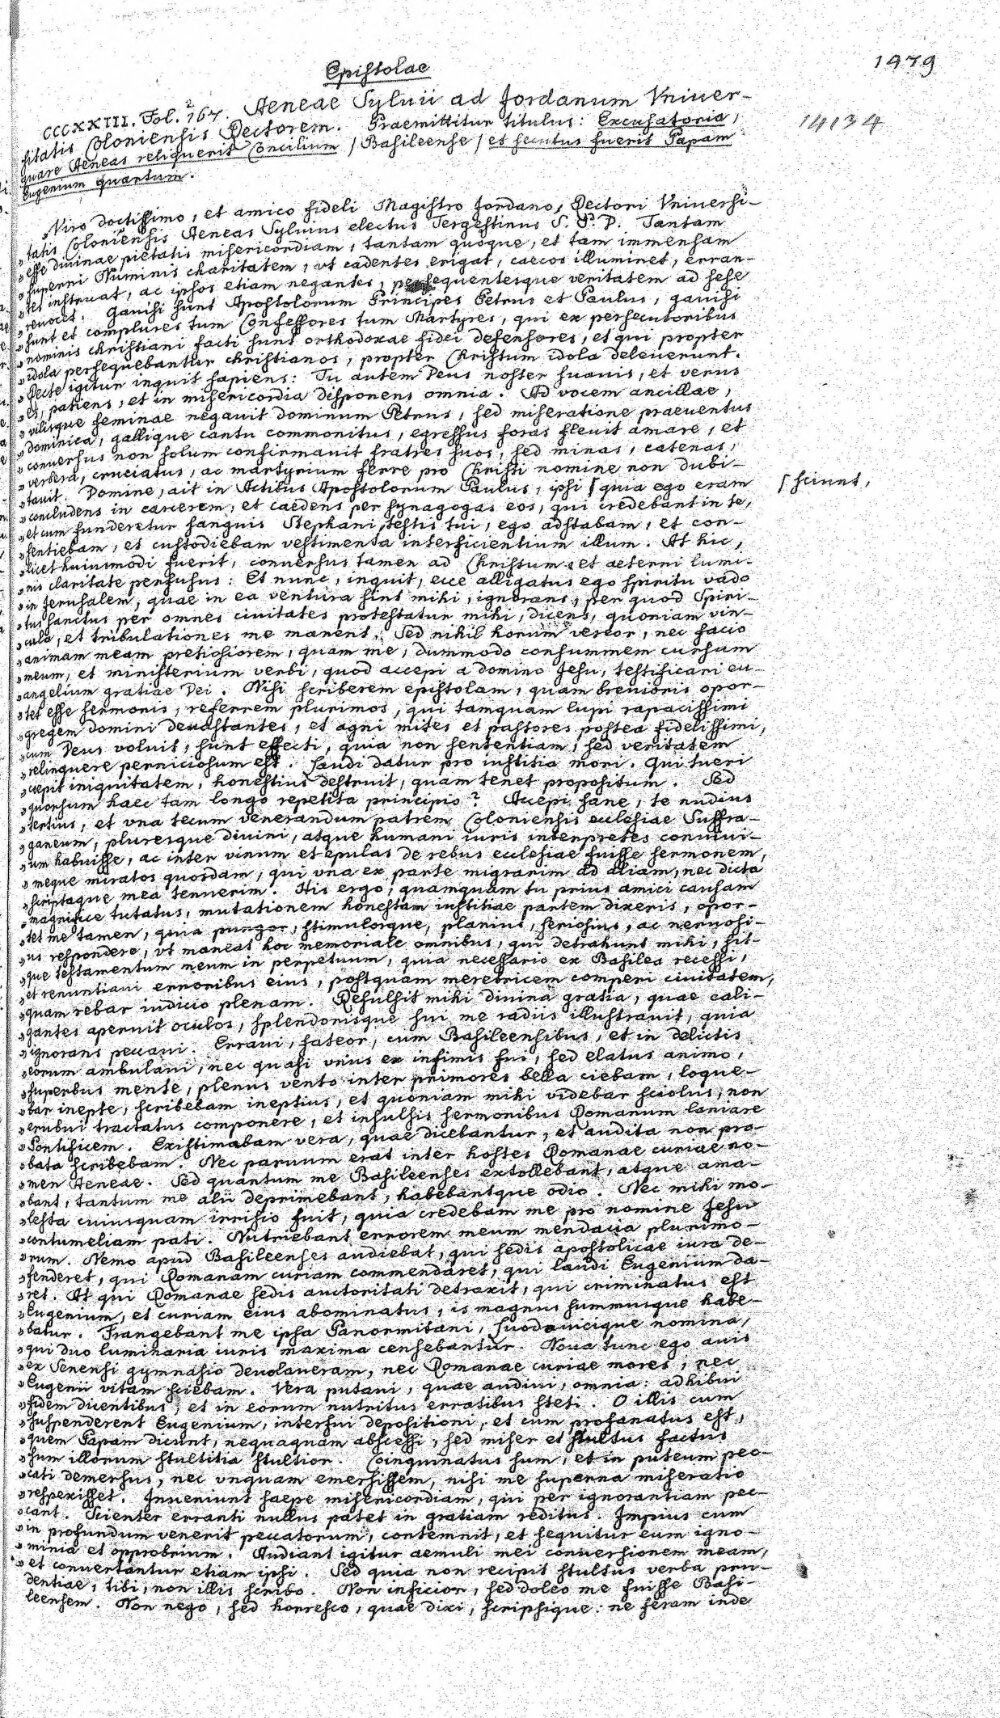 Epistolae
1479
CCCXXIII. Fol. 167. Aeneae Syluii ad Jordanum Vniuer-
sitatis Coloniensis Rectorem. Praemittitur titulus: Excusatoria,
14134
quare Aeneas reliquerit Concilium / Basileense / et secutus fuerit Papam
Eugenium quartum.
„Viro doctissimo, et amico fideli Magistro Jordano, Rectori Vniversi-
„tatis Coloniensis Aeneas Syluius electus Tergestinus S. P. D. Tantam
„esse diuinae pietatis misericordiam, tantam quoque, et tam immensam
„superni Numinis charitatem, vt cadentes erigat, caecos illuminet, erran-
„tes instruat, ac ipsos etiam negantes, persequentesque veritatem ad sese
„reuocet. Gauisi sunt Apostolorum Principes Petrus et Paulus, gauisi
„sunt et complures tum Confessores tum Martyres, qui ex persecutoribus
„nominis christiani facti sunt orthodoxae fidei defensores, et qui propter
„idola persequebantur christianos, propter Christum idola deleuerunt.
„Recte igitur inquit sapiens: Tu autem Deus noster suauis, et verus
„es, patiens, et in misericordia disponens omnia. Ad vocem ancillae,
„vilisque feminae negauit dominum Petrus, sed miseratione praeuentus
„dominica, gallique cantu commonitus, egressus foras fleuit amare, et
„conuersus non solum confirmauit fratres suos, sed minas, catenas,
„verbera, cruciatus, ac martyrium ferre pro Christi nomine non dubi-
„tauit. Domine, ait in Actibus Apostolorum Paulus, ipsi ʃ quia ego eram
ʃ sciunt,
„concludens in carcerem, et caedens per synagogas eos, qui credebant in te,
„et cum funderetur sanguis Stephani, testis tui, ego adstabam, et con-
„sentiebam, et custodiebam vestimenta interficientium illum. At hic,
„licet huiusmodi fuerit, conuersus tamen ad Christum, et aeterni lumi-
„nis claritate perfusus: Et nunc, inquit, ecce alligatus ego spiritu vado
„in Jerusalem, quae in ea ventura sint mihi, ignorans, per quod Spiri-
„tus sanctus per omnes ciuitates protestatur mihi, dicens, quoniam vin-
„cula, et tribulationes me manent. Sed nihil horum vereor, nec facio
„animam meam pretiosiorem, quam me, dummodo consummem cursum
„meum, et ministerium verbi, quod accepi a domino Jesu, testificari eu-
„angelium gratiae Dei. Nisi scriberem epistolam, quam breuioris opor-
„tet esse sermonis, referrem plurimos, qui tamquam lupi rapacissimi
„gregem domini deuastantes, et agni mites et pastores postea fidelissimi,
„cum Deus voluit, sunt effecti, quia non sententiam, sed veritatem
„relinquere perniciosum est. Laudi datur pro iustitia mori. Qui tueri
„cepit iniquitatem, honestius destruit, quam tenet propositum. Sed
„quorsum haec tam longo repetita principio? Accepi sane, te nudius
„tertius, et vna tecum venerandum patrem Coloniensis ecclesiae Suffra-
„ganeum, pluresque diuini, atque humani iuris interpretes conuiui-
„um habuisse, ac inter vinum et epulas de rebus ecclesiae fuisse sermonem,
„meque miratos quosdam, qui vna ex parte migrarim ad aliam, nec dicta
„scriptaque mea tenuerim. His ergo, quamquam tu prius amici causam
„magnifice tutatus, mutationem honestam iustitiae partem dixeris, opor-
„tet me tamen, quia pungor, stimulorque, planius, seriosius, ac neruosi-
„us respondere, vt maneat hoc memoriale omnibus, qui detrahunt mihi, sit-
„que testamentum meum in perpetuum, quia necessario ex Basilea recessi,
„et renuntiaui erroribus eius, postquam meretricem comperi ciuitatem,
„quam rebar iudicio plenam. Refulsit mihi diuina gratia, quae cali-
„gantes aperuit oculos, splendorisque sui me radiis illustrauit, quia
„ignorans peccaui. Erraui, fateor, cum Basileensibus, et in delictis
„eorum ambulaui, nec quasi vnus ex infimis fui, sed elatus animo,
„superbus mente, plenus vento inter primores bella ciebam, loque-
„bar inepte, scribebam ineptius, et quoniam mihi videbar sciolus, non
„erubui tractatus componere, et insulsis sermonibus Romanum laniare
„Pontificem. Existimabam vera, quae dicebantur, et audita non pro-
„bata scribebam. Nec paruum erat inter hostes Romanae curiae no-
„men Aeneae. Sed quantum me Basileenses extollebant, atque ama-
„bant, tantum me alii deprimebant, habebantque odio. Nec mihi mo-
„lesta cuiusquam irrisio fuit, quia credebam me pro nomine Jesu
„contumeliam pati. Nutriebant errorem meum mendacia plurimo-
„rum. Nemo apud Basileenses audiebat, qui sedis apostolicae iura de-
„fenderet, qui Romanam curiam commendaret, qui laudi Eugenium da-
„ret. At qui Romanae sedis auctoritati detraxit, qui criminatus est
„Eugenium, et curiam eius abominatus, is magnus summusque habe-
„batur. Frangebant me ipsa Panormitani, Luodouicique nomina,
„qui duo luminaria iuris maxima censebantur. Noua tunc ego auis
„ex Senensi gymnasio deuolaueram, nec Romanae curiae mores, nec
„Eugenii vitam sciebam. Vera putaui, quae audiui, omnia: adhibui
„fidem dicentibus, et in eorum nutritus erratibus steti. O illis cum
„suspenderent Eugenium, interfui depositioni, et cum profanatus est,
„quem Papam dicunt, nequaquam abscessi, sed miser et stultus factus
„sum illorum stultitia stultior. Coinquinatus sum, et in puteum pec-
„cati demersus, nec vnquam emersissem, nisi me superna miseratio
„respexisset. Inueniunt saepe misericordiam, qui per ignorantiam pec-
„cant. Scienter erranti nullus patet in gratiam reditus. Impius cum
„in profundum venerit peccatorum, contemnit, et sequitur eum igno-
„minia et opprobrium. Audiant igitur aemuli mei conuersionem meam,
„et conuertantur etiam ipsi. Sed quia non recipit stultus verba pru-
dentiae, tibi, non illis scribo. Non inficior, sed doleo me fuisse Basi-
leensem. Non nego, sed horresco, quae dixi, scripsique: ne feram inde